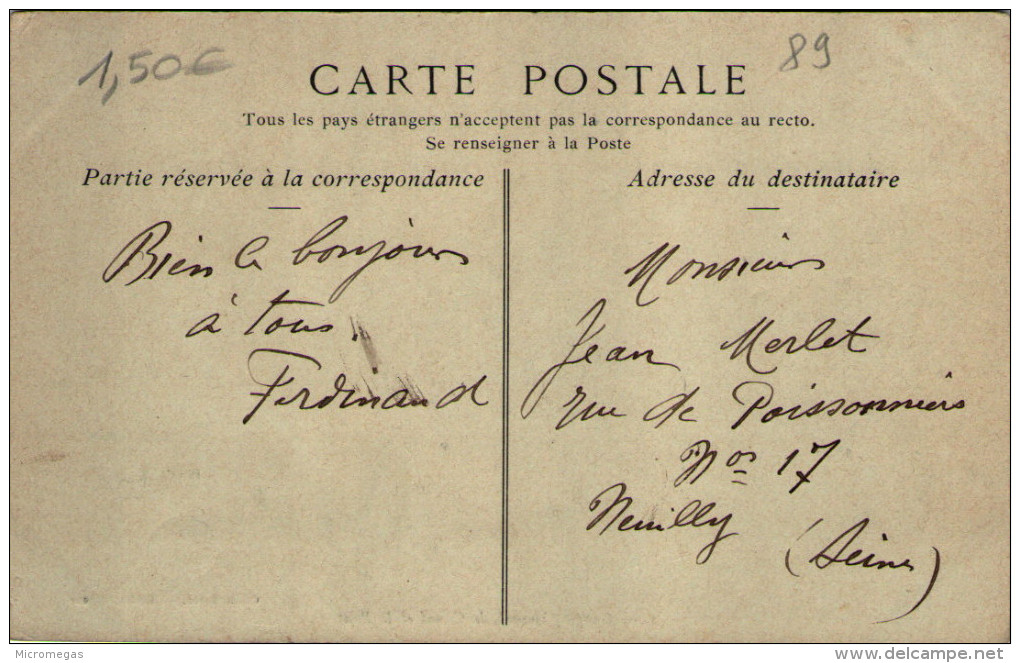 1,50€
89
CARTE POSTALE
Tous les pays étrangers n'acceptent pas la correspondance au recto.
Se renseigner à la Poste
Partie réservée à la correspondance
Bien le bonjour
à tous.
Ferdinand
Adresse du destinataire
Monsieur
Jean Merlet
rue de Poissonniers
Nos 17
Neuilly
(Seine)
Micromegas
delcampe.net